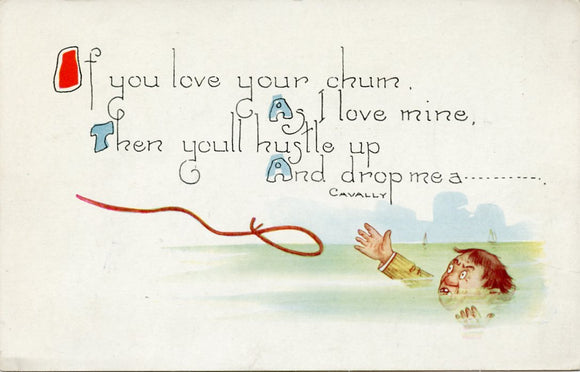 If you love your chum.
As I love mine,
Then youll hustle up
And drop me a----------.
CAVALLY